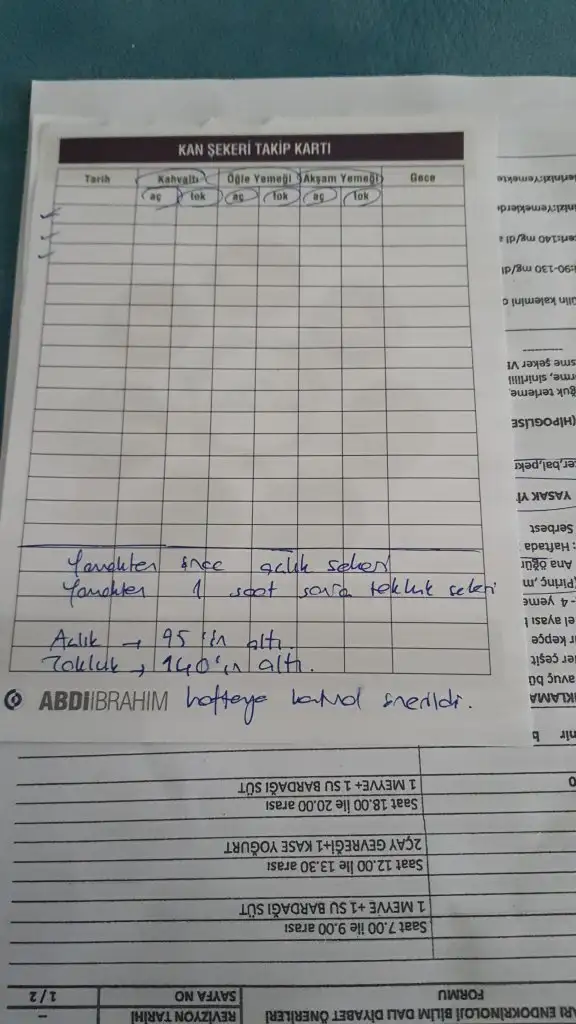 KAN ŞEKERİ TAKİP KARTI
Tarih Kahvaltı Öğle Yemeği Akşam Yemeği Gece
aç tok aç tok aç tok
Yemekten önce açlık şekeri
Yemekten 1 saat sonra tokluk şekeri
Açlık → 95'in altı.
Tokluk → 140'ın altı.
ABDİİBRAHİM haftaya kontrol önerildi.
ARI ENDOKRİNOLOJİ BİLİM DALI DİYABET ÖNERİLERİ
FORMU
REVİZYON TARİHİ –
SAYFA NO 1 / 2
Saat 7.00 ile 9.00 arası
1 MEYVE +1 SU BARDAĞI SÜT
Saat 12.00 ile 13.30 arası
2ÇAY GEVREĞİ+1 KASE YOĞURT
Saat 18.00 ile 20.00 arası
1 MEYVE+ 1 SU BARDAĞI SÜT
avuç
ler çeşit
ır kepçe
el ayası
- 4 yeme
(Pirinç, m
Ana öğün
: Haftada
Serbest
YASAK Yİ
er,bal,pekr
(HİPOGLİSE
ğuk terleme,
rme, sinirlili
sme şeker VI
ülin kalemini
:90-130 mg/dl
140 mg/dl